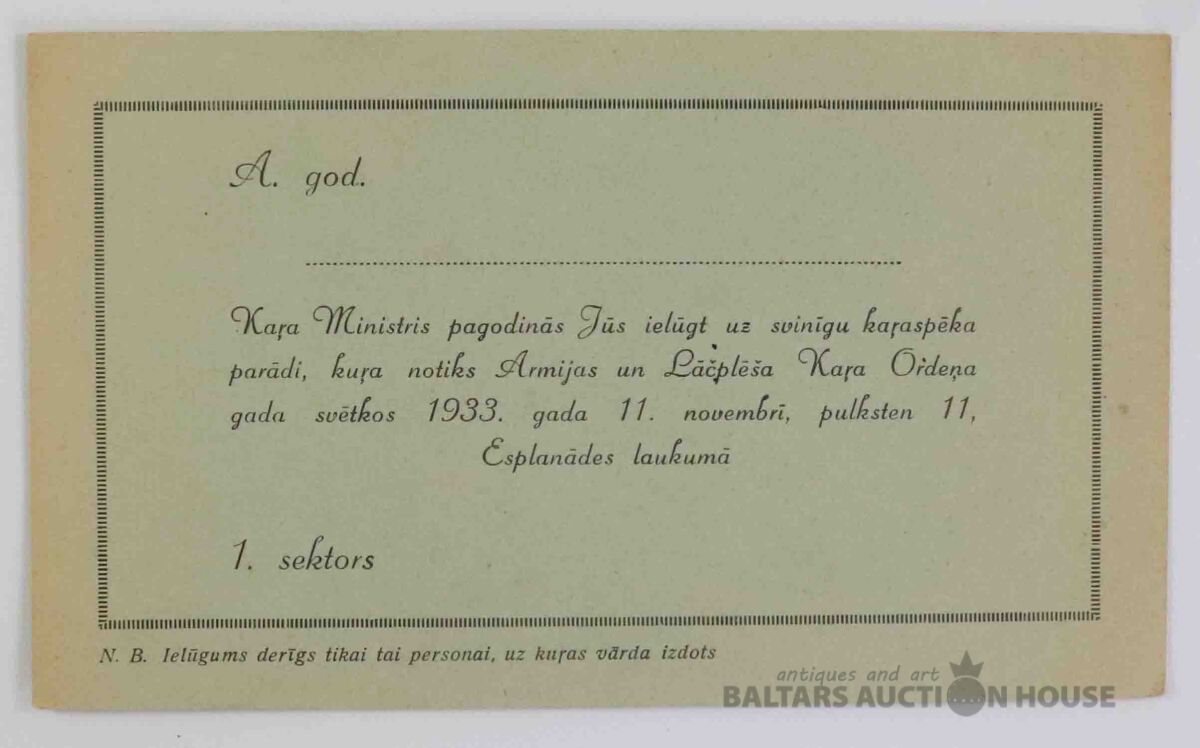 A. god.
Kaŗa Ministris pagodinās Jūs ielūgt uz svinīgu kaŗaspēka
parādi, kuŗa notiks Armijas un Lāčplēša Kaŗa Ordeņa
gada svētkos 1933. gada 11. novembrī, pulksten 11,
Esplanādes laukumā
1. sektors
N. B. Ielūgums derīgs tikai tai personai, uz kuŗas vārda izdots
antiques and art
BALTARS AUCTION HOUSE